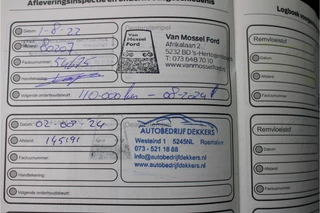 Afleveringsinspectie en onderhoudsgeschiedenis
Logboek
Datum: 1-8-22
Afstand: 80207
Factuurnummer:
Handtekening:
Volgende onderhoudsbeurt: 110.000 km - 08-2024
Van Mossel Ford
Van Mossel Ford
Afrikalaan 2
5232 BD 's-Hertog
T 073 648 70 10
www.vanmossel
Remvloeistof
Datum:
Afstand:
Datum: 02-08-24
Afstand: 145191
Factuurnummer:
Handtekening:
Volgende onderhoudsbeurt:
AUTOBEDRIJF DEKKERS
Westeind 1 5245NL Rosmalen
073 - 521 18 88
info@autobedrijfdekkers.nl
www.autobedrijfdekkers.nl
Remvloeistof
Datum:
Afstand: